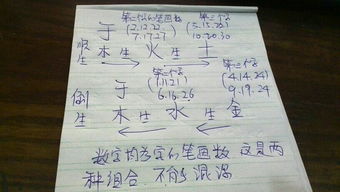 第二个字的笔画数 第三个字
顺生 于 (2.12.22 7.17.27) (5.15.20 10.20.30
木 生 火 生 土
第三个字
倒生 于 (1.11.21 6.16.26 (4.14.24) 9.19.24
木 生 水 生 金
数字均为字的笔画数 这是两
种组合 不能混淆